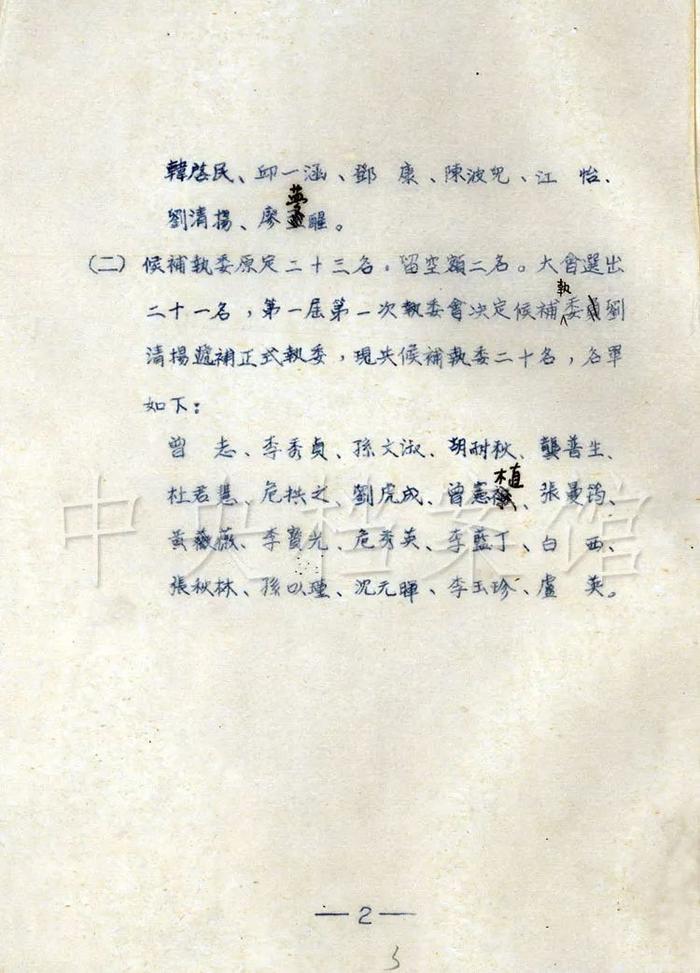 韓啓民、邱一涵、鄧 康、陳波兒、江 怡、
劉清揚、廖夢醒。
(二) 候補執委原定二十三名，留空額二名。大會選出
二十一名，第一屆第一次執委會決定候補執委劉
清揚遞補正式執委，現共候補執委二十名，名單
如下：
曾 志、李秀貞、孫文淑、胡耐秋、龔普生、
杜君慧、危拱之、劉虎成、曾憲植、張曼筠、
黃薇薇、李寶光、危秀英、李藍丁、白 茜、
張秋林、孫以瑾、沈元暉、李玉珍、盧 英。
中央档案馆
—2—